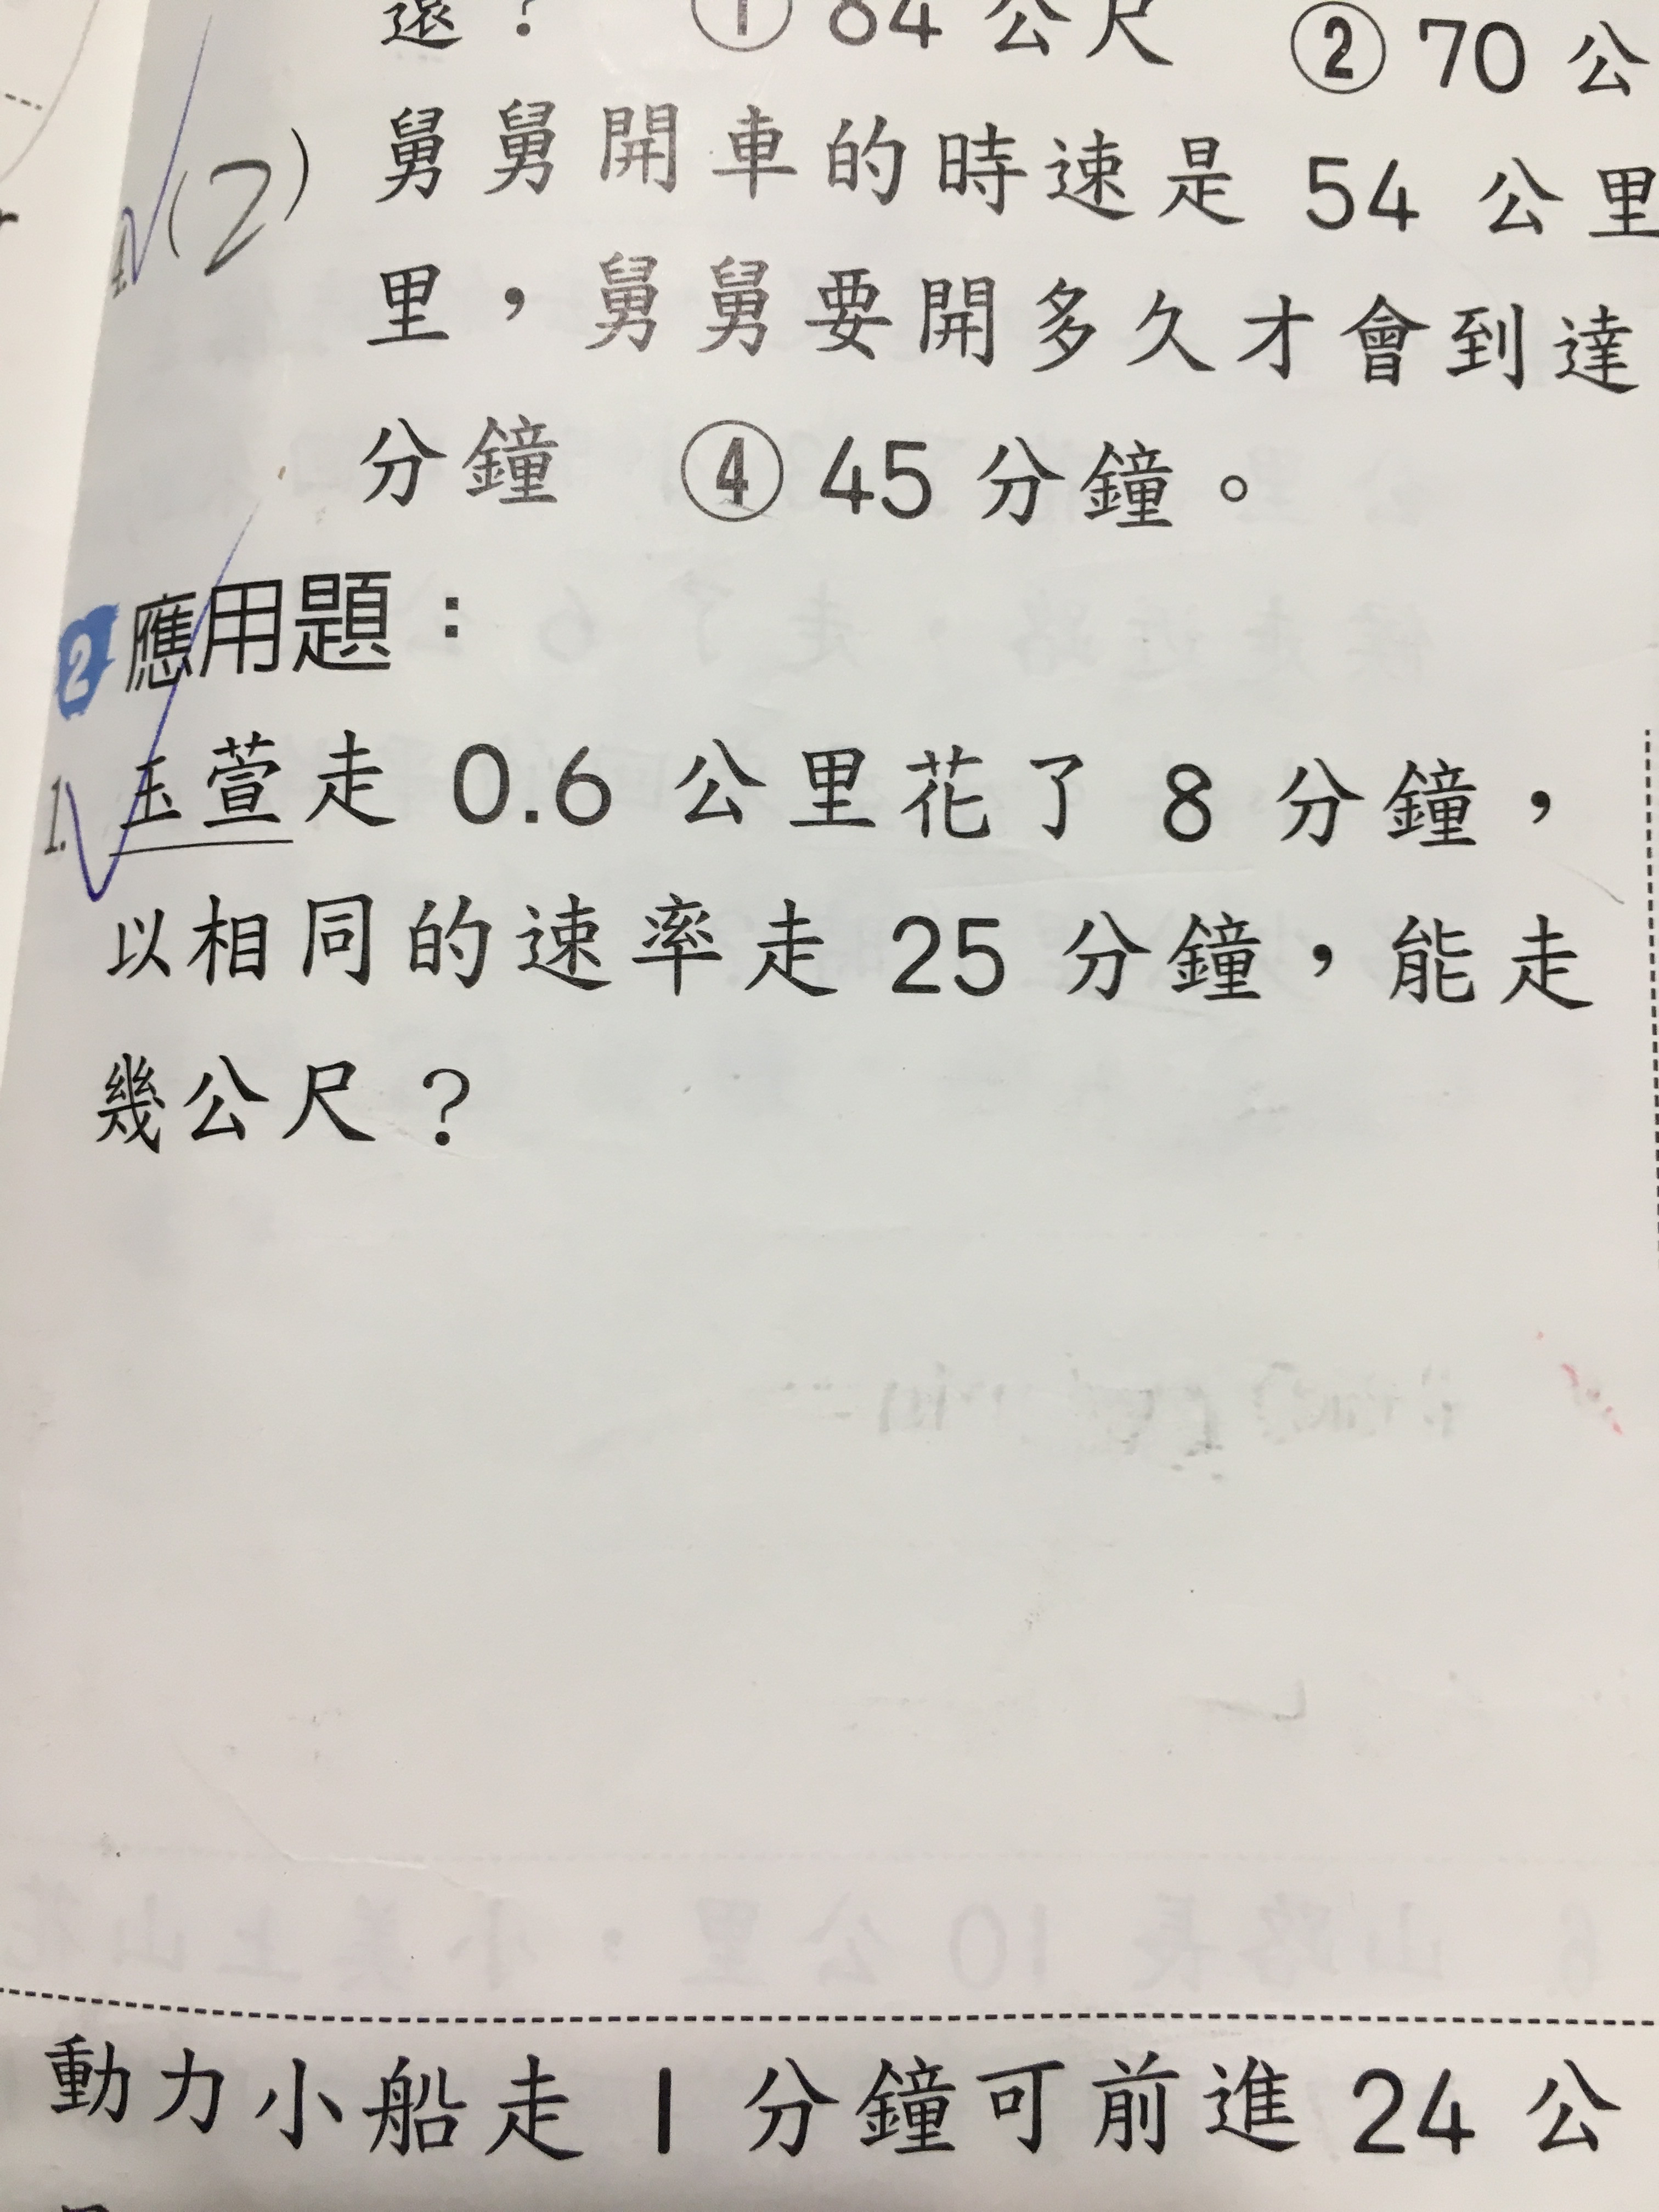 還？ ① 84 公尺 ② 70 公
(2) 舅舅開車的時速是 54 公里
里，舅舅要開多久才會到達
分鐘 ④ 45 分鐘。
2 應用題：
1. 玉萱走 0.6 公里花了 8 分鐘，
以相同的速率走 25 分鐘，能走
幾公尺？
6. 山路長 10 公里，小美上山花
動力小船走 1 分鐘可前進 24 公